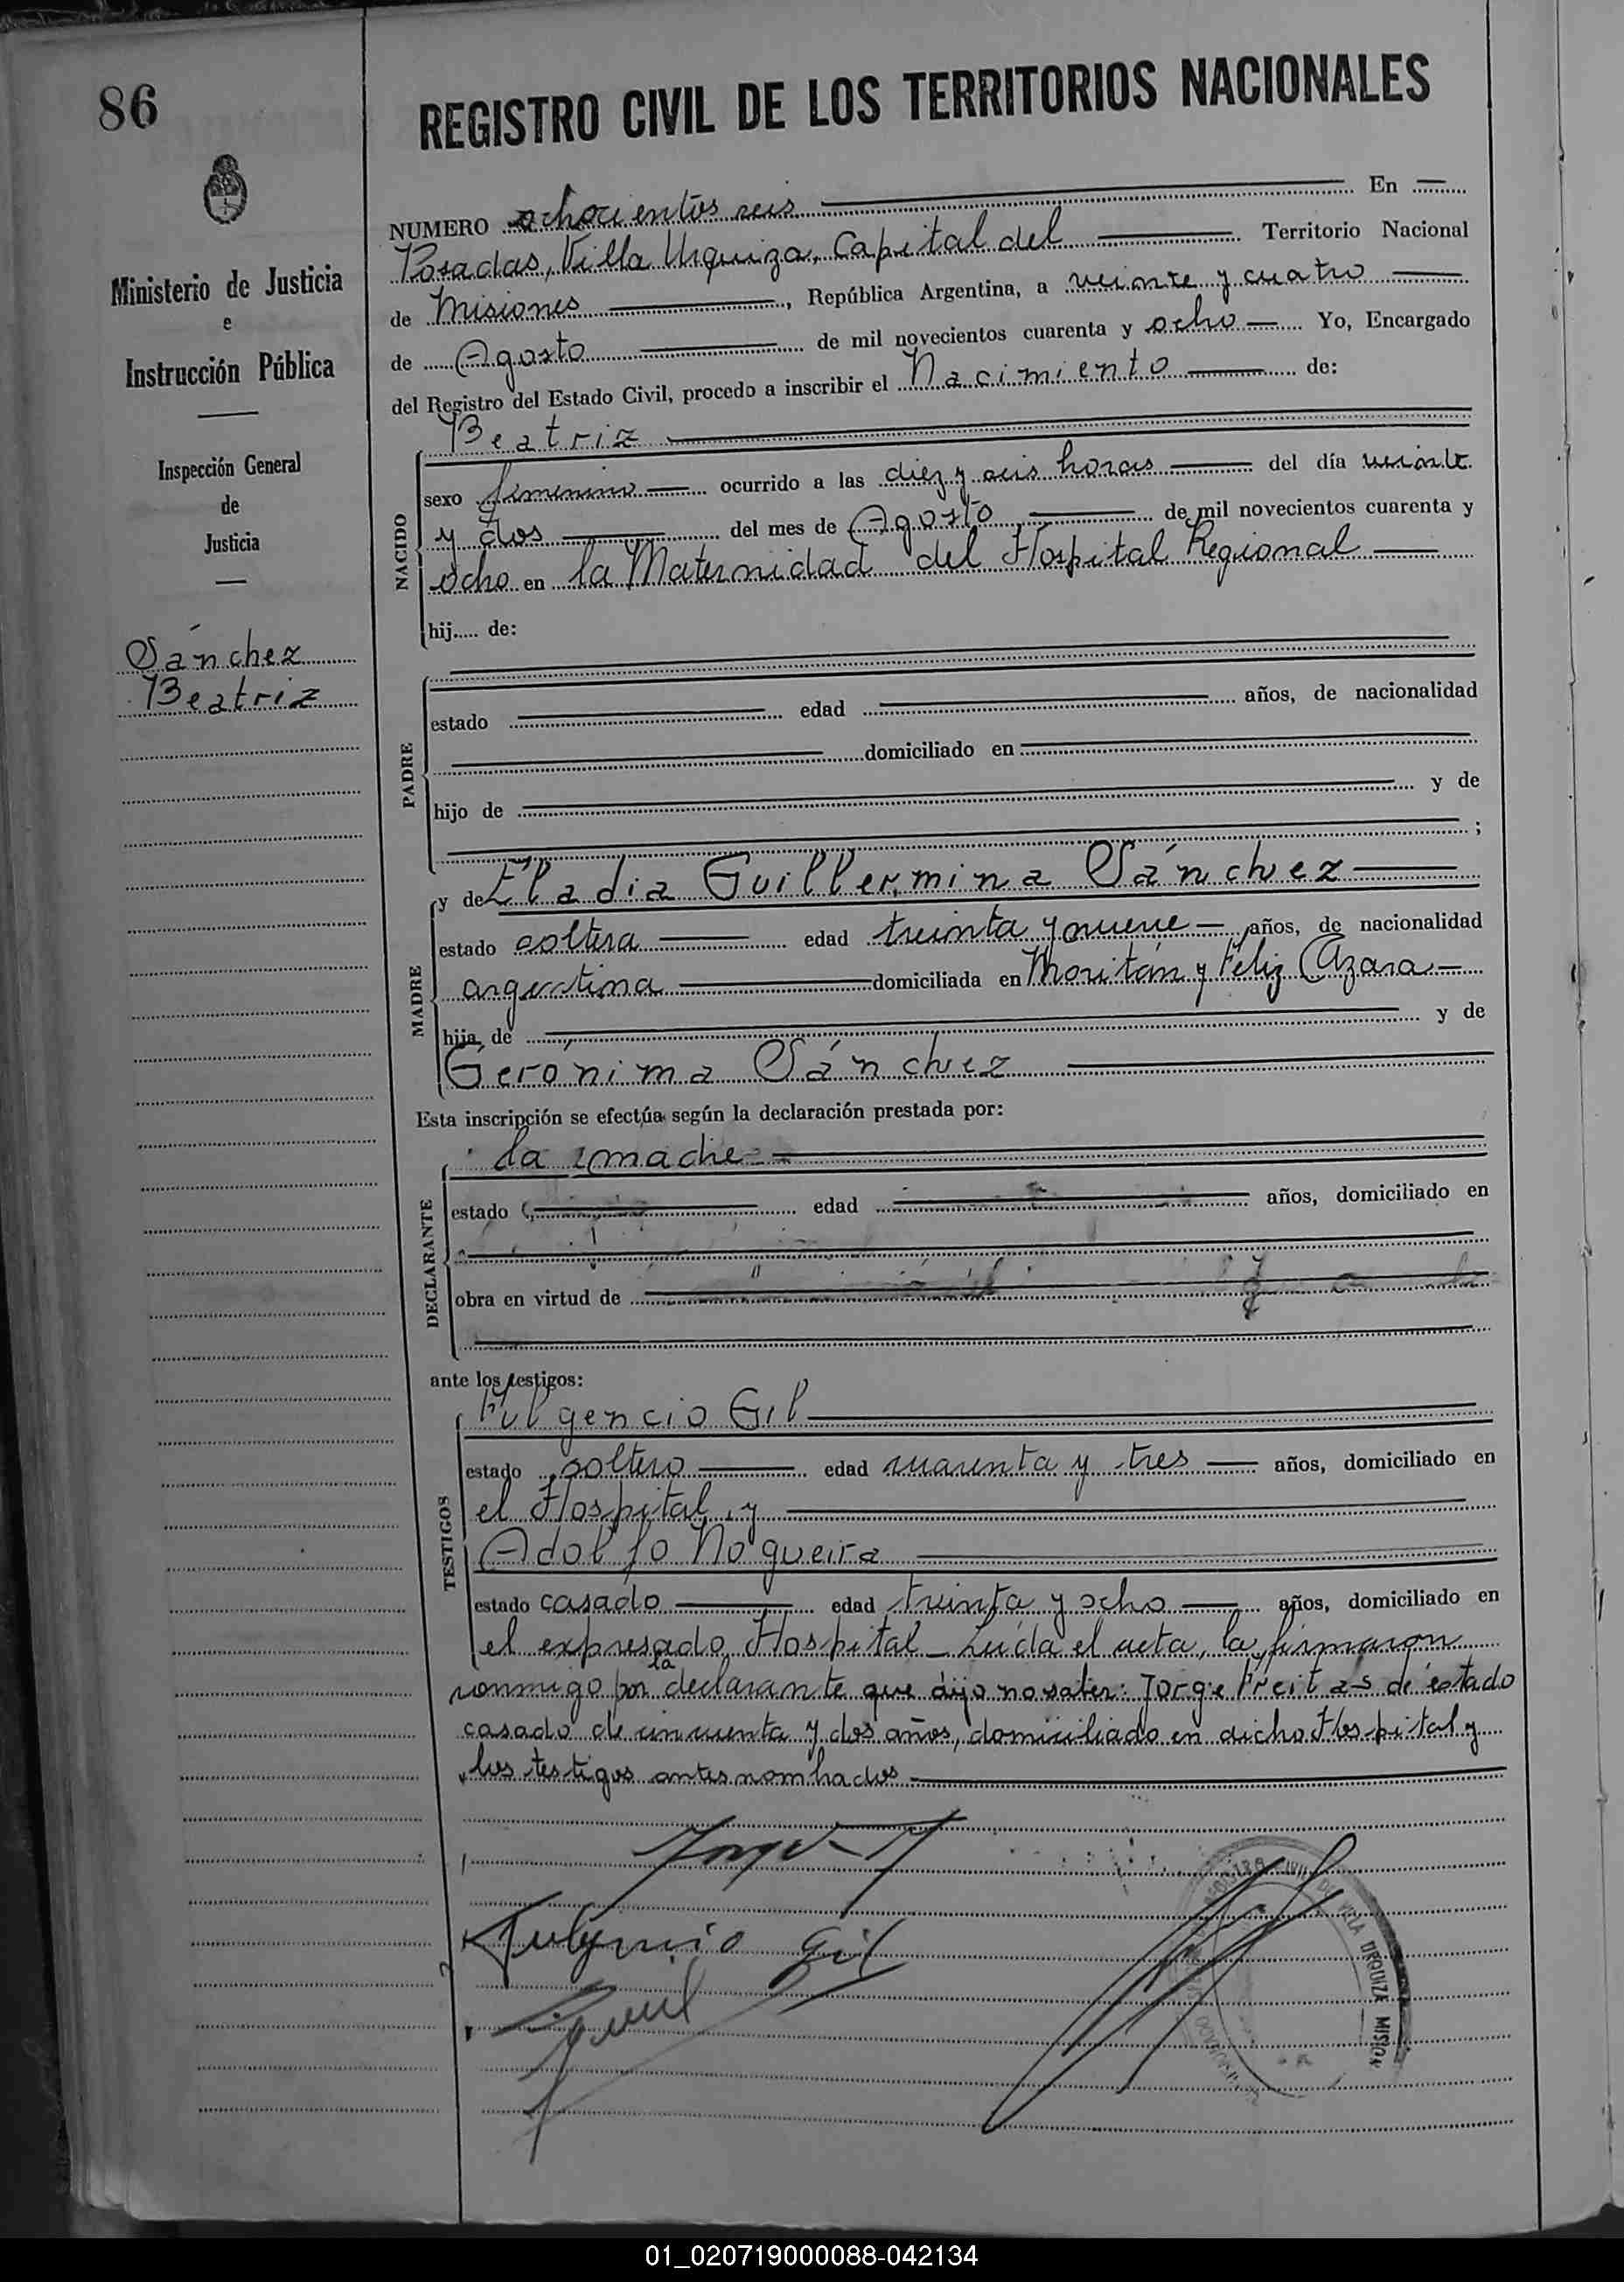 86
REGISTRO CIVIL DE LOS TERRITORIOS NACIONALES
Ministerio de Justicia
e
Instrucción Pública
Inspección General
de
Justicia
Sánchez
Beatriz
NUMERO ochocientos seis En
Posadas, Villa Urquiza, Capital del Territorio Nacional
de Misiones, República Argentina, a veinte y cuatro
de Agosto de mil novecientos cuarenta y ocho Yo, Encargado
del Registro del Estado Civil, procedo a inscribir el Nacimiento de:
Beatriz
NACIDO
sexo femenino ocurrido a las diez y seis horas del día veinte
y dos del mes de Agosto de mil novecientos cuarenta y
ocho en la Maternidad del Hospital Regional
hij..... de:
PADRE
estado edad años, de nacionalidad
domiciliado en
hijo de y de
;
MADRE
y de Eladia Guillermina Sánchez
estado soltera edad treinta y nueve años, de nacionalidad
argentina domiciliada en Moritán y Féliz Azara
hija de y de
Gerónima Sánchez
Esta inscripción se efectúa según la declaración prestada por:
DECLARANTE
la madre
estado edad años, domiciliado en
obra en virtud de
ante los testigos:
TESTIGOS
Fulgencio Gil
estado soltero edad cuarenta y tres años, domiciliado en
el Hospital y
Adolfo Nogueira
estado casado edad treinta y ocho años, domiciliado en
el expresado Hospital Leída el acta, la firmaron
conmigo por la declarante que dijo no saber: Jorge Freitas de estado
casado de cincuenta y dos años, domiciliado en dicho Hospital y
los testigos antes nombrados
Fulgencio Gil
REGISTRO CIVIL DE VILLA URQUIZA MISION
01_020719000088-042134